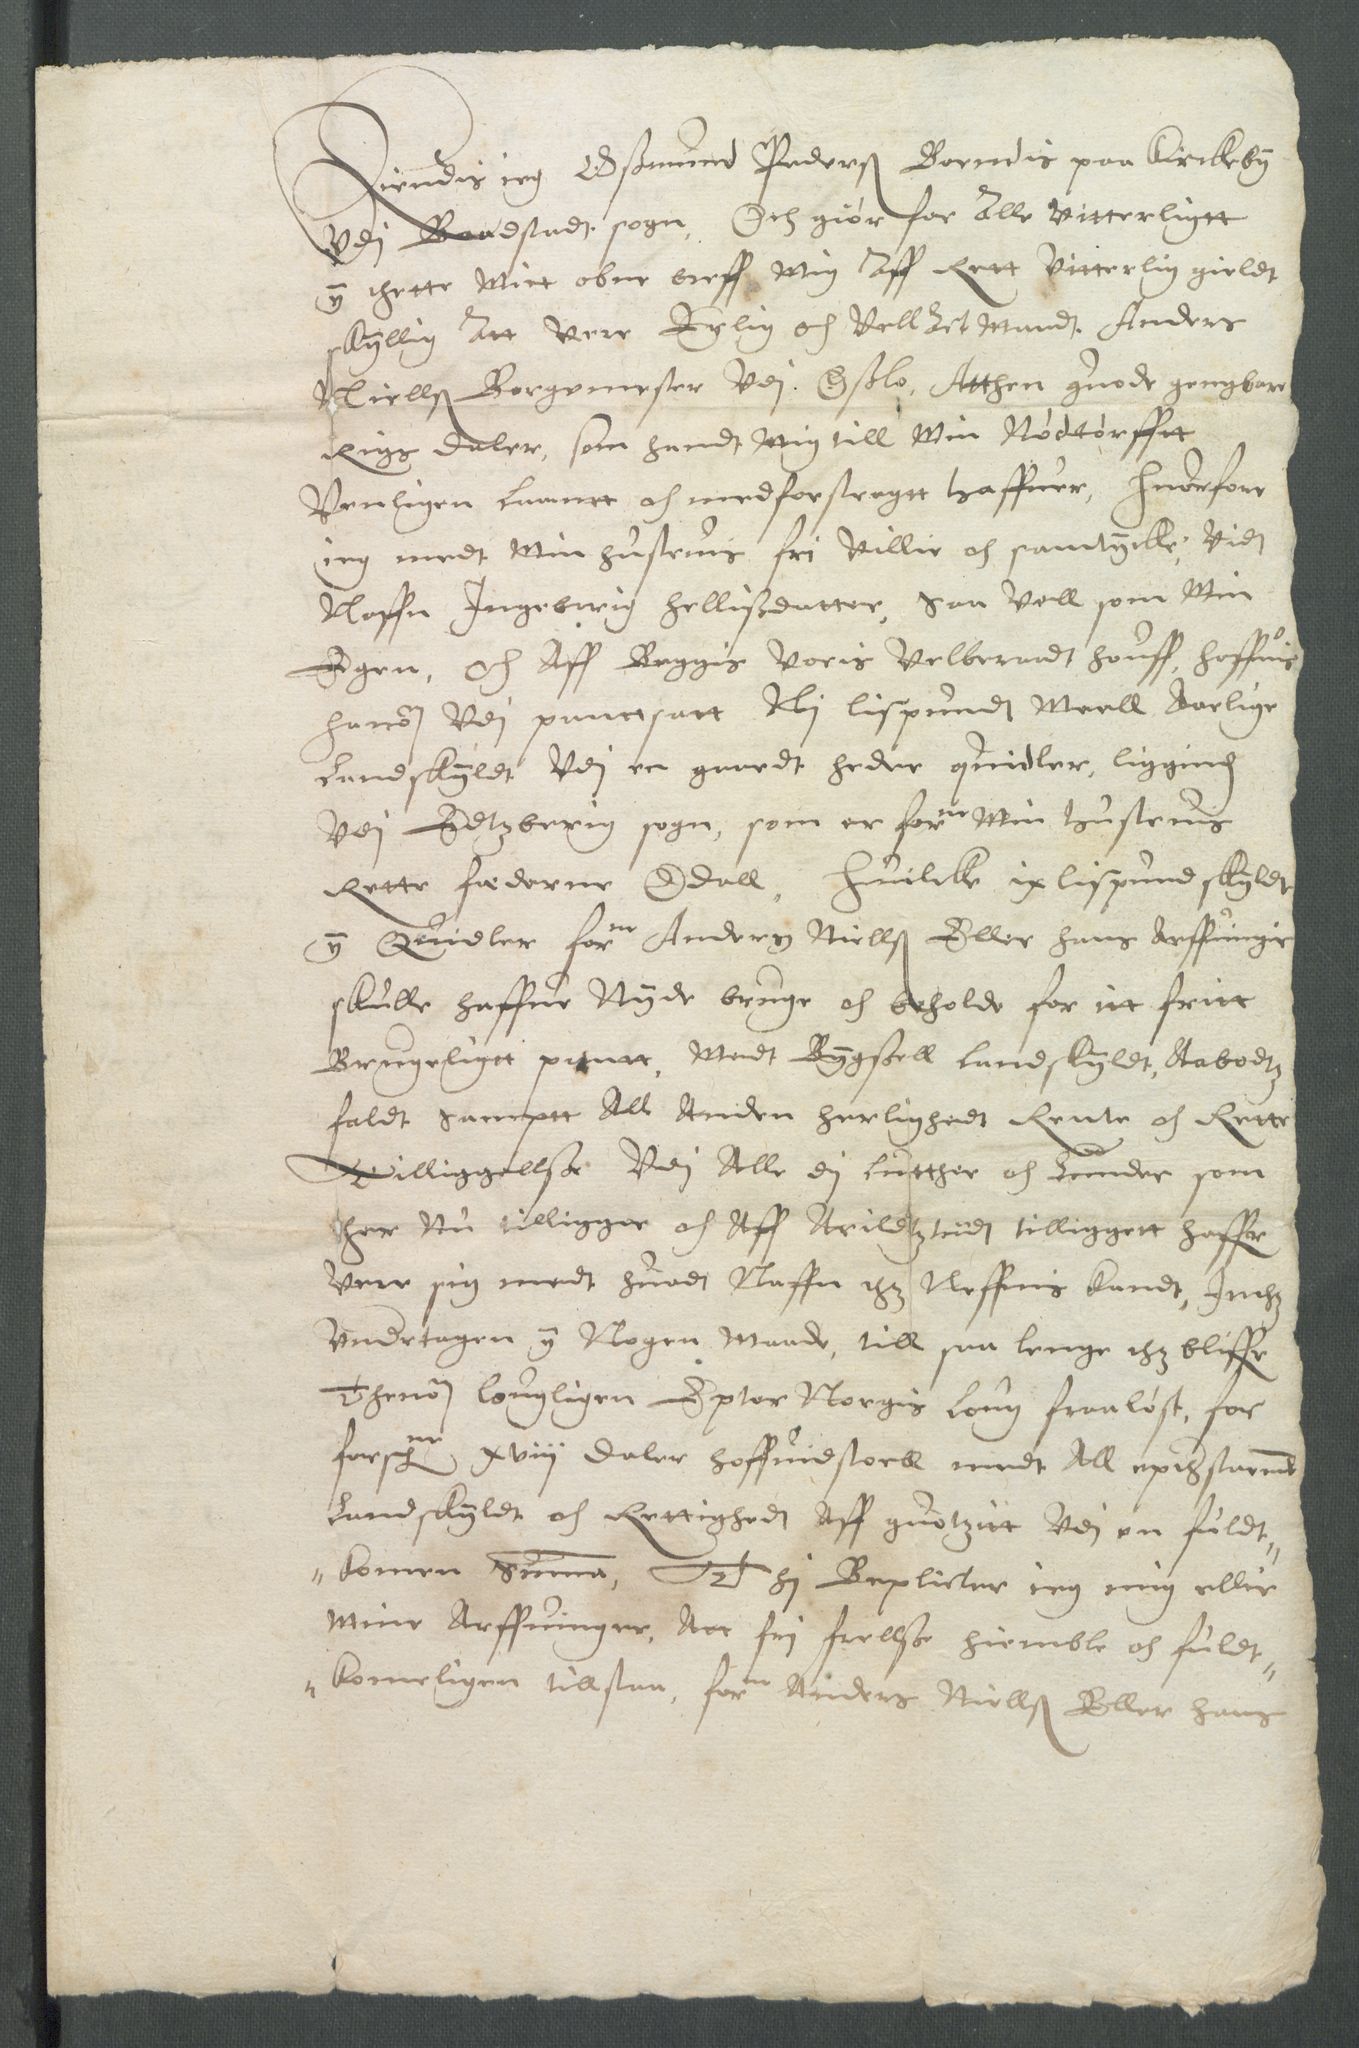 Kiendis ieg Gßmund Pederß Boendis paa Kirckebÿ
Vdj Baadstadt sogn, Och giör for Alle Vitterligtt
ÿ thette Mitt obne breff Mig Aff Rett Vitterlig gieldt
skÿllig Att Vere Erlig och Vell Act Mandt Anders
Nielß Borgemester Vdj Oßlo, Atthen guode gengbare
Rigs daler, som handt Mig till Min Nödtörfftt
Venligen Laantt och medforstregtt haffuer, huorfore
ieg medt Min hustruis fri Villie och samtÿcke, Vidt
Naffn Ingeborrig hellißdatter, saa Vell som Min
Egen, och Aff Beggis Voris Velberaadt houff, haffuer
hannom Vdj panttsatt lispundt Meell Aarlige
Landskÿldt Vdj en gaardt heder quidler, liggindis
Vdj Edtzberrig sogn, som er forne Min hustruis
Rette federne Odall, huilcke ix lispund skÿldt
ÿ Quidler forne Anders Nielß Eller hans Arffuingir
skulle haffue Nÿde bruge och beholde for itt fritt
Brugeligtt pantt, Medt Bÿgßell Landskÿldt, Aabodtz
faldt samptt All Anden herlighedt Rente och Rette
Tilliggellße Vdj Alle dj Lutther och Lunder som
ther Nu tilligger och Aff Arildtztidt tilliggett haffr
Vere sig medt huadt Naffn thz Neffnis kandt, Inthz
Vndertagen ÿ Nogen Maade, till saa lenge thz bliffr
Thennom lougligen Epter Norgis Loug fraalöst, for
forschne xviij daler hoffuidstoell medt All
Landskÿldt och Rettighedt Aff guotzitt Vdj en fuldt„
„komen Summa, Thj Beplicter ieg mig eller
Mine Arffuinger, Att fri frellße hiemble och fuldt„
„komeligen tillstaa, forne Anders Nielß Eller hans